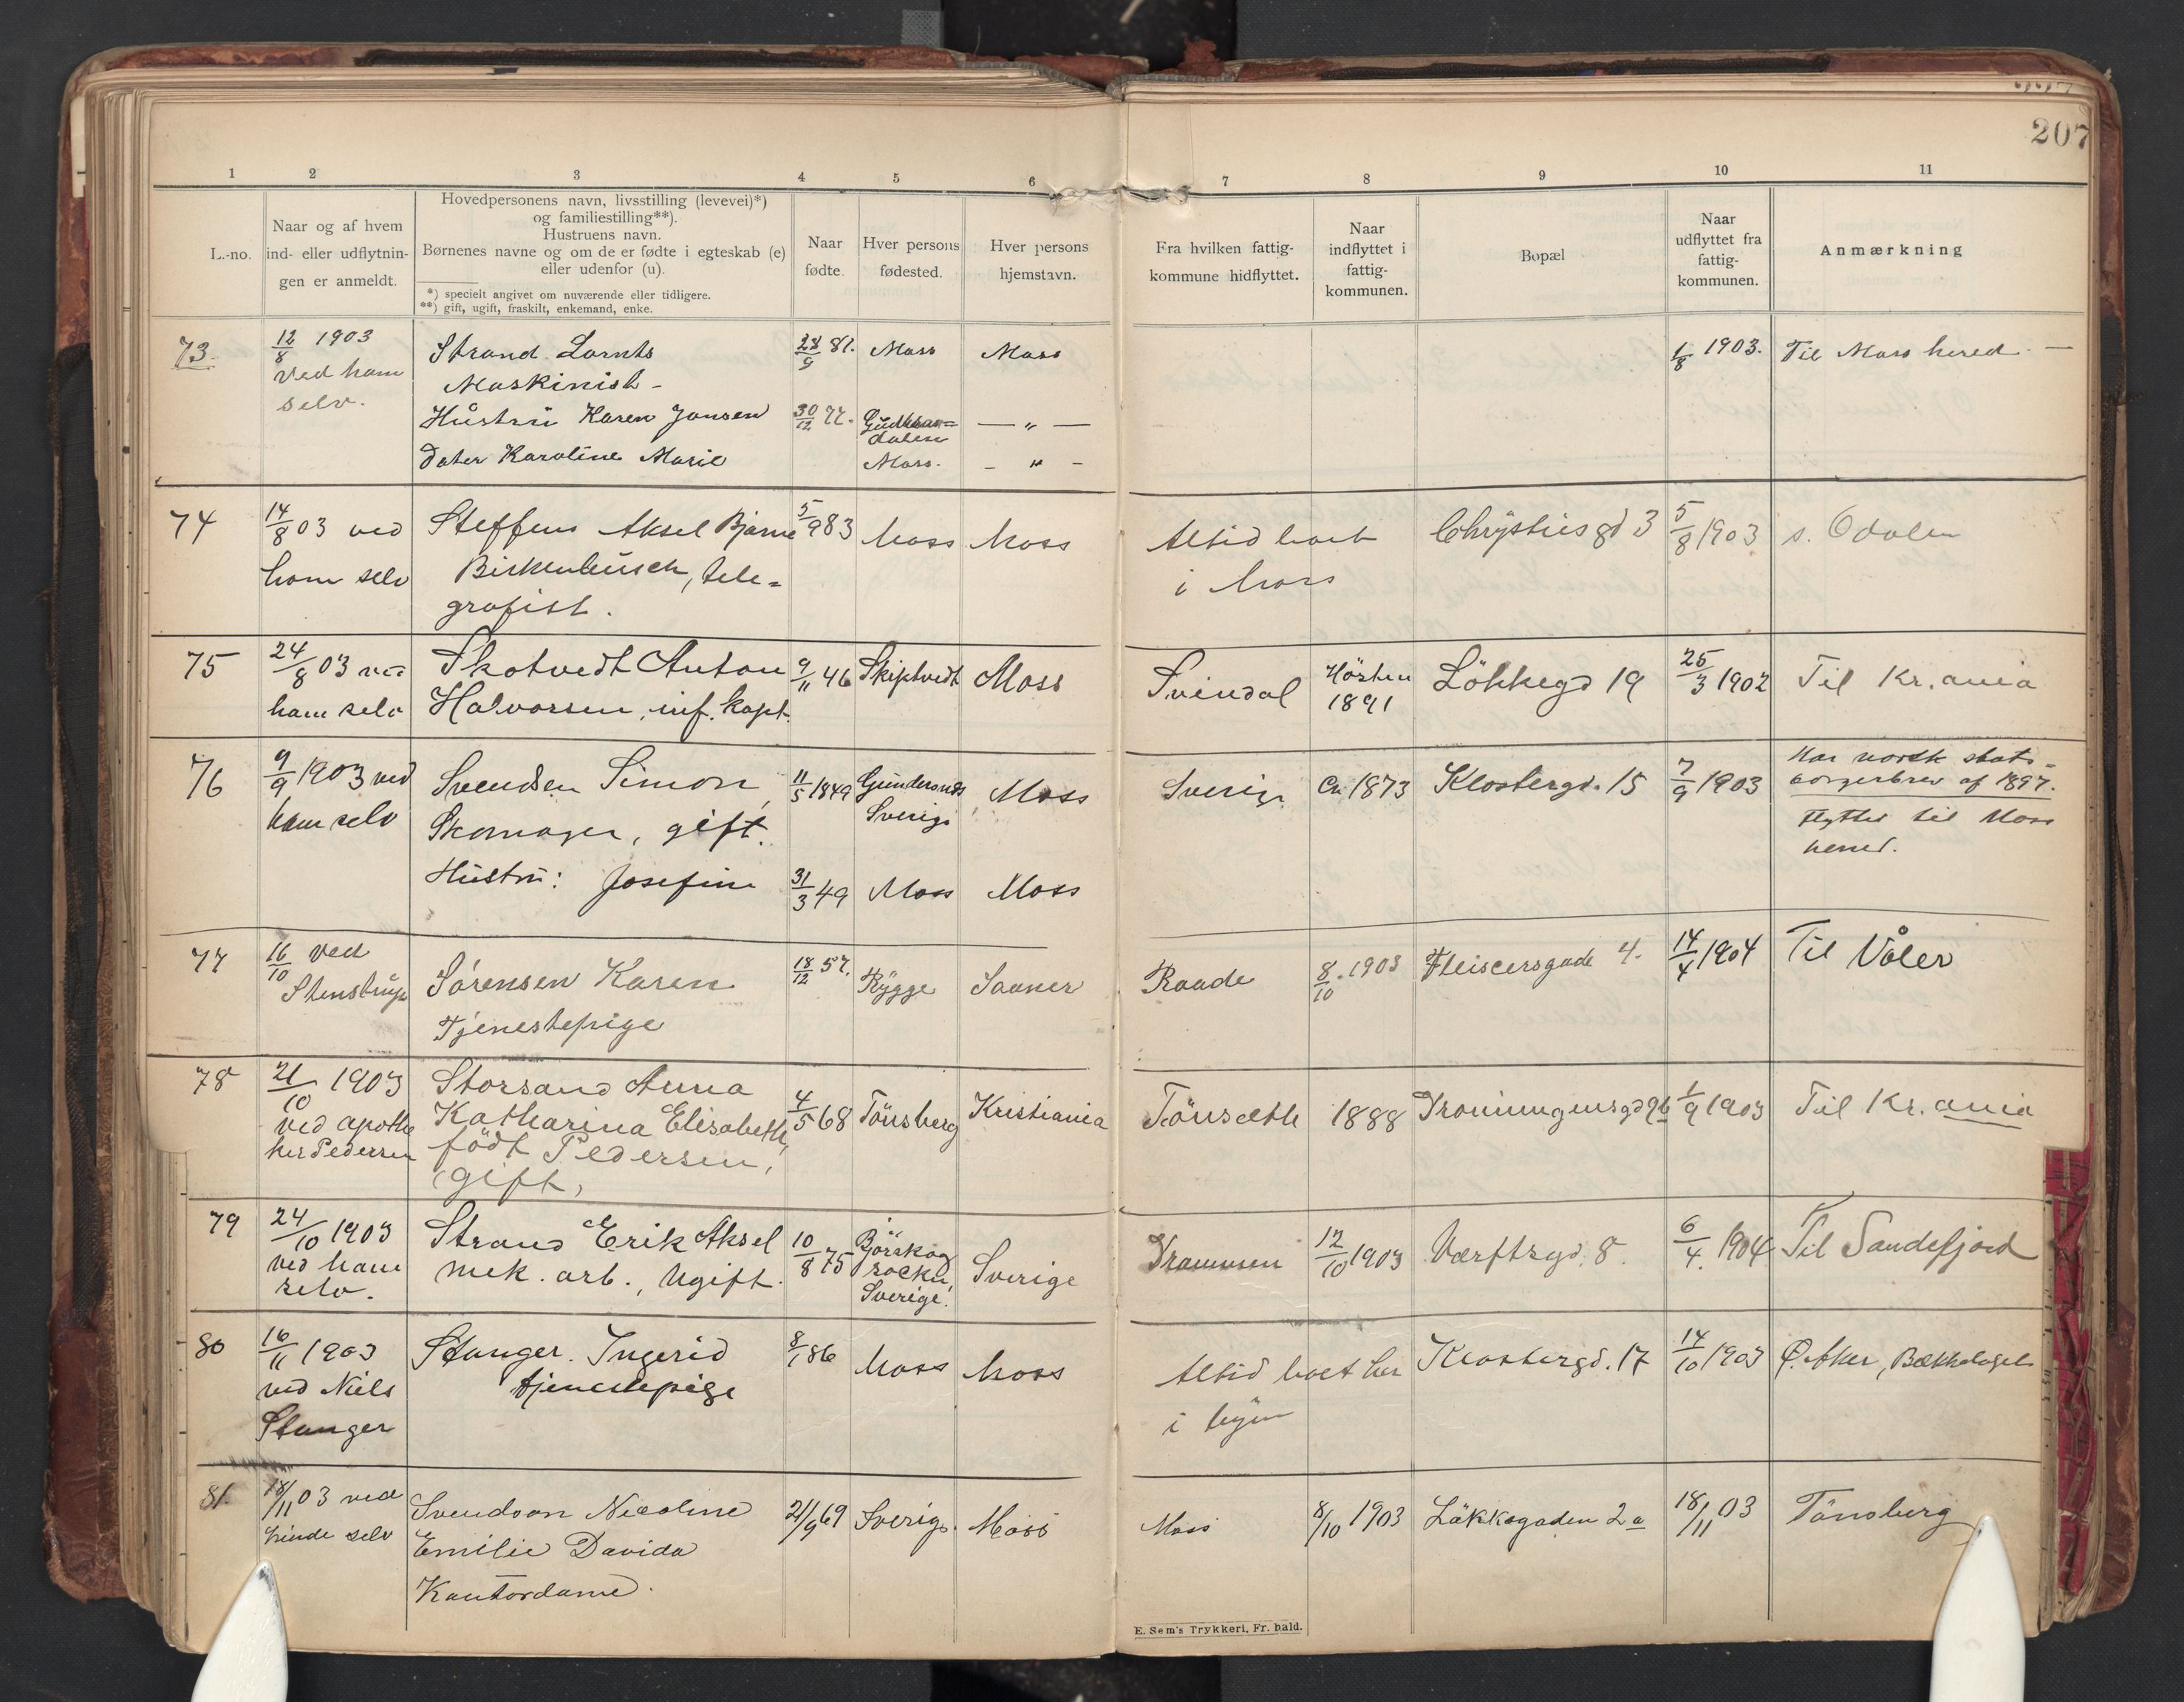 207
1 2 3 4 5 6 7 8 9 10 11
L.-no.
Naar og af hvem
ind- eller udflytnin-
gen er anmeldt.
Hovedpersonens navn, livsstilling (levevei)*)
og familiestilling**).
Hustruens navn.
Børnenes navne og om de er fødte i egteskab (e)
eller udenfor (u).
*) specielt angivet om nuværende eller tidligere.
**) gift, ugift, fraskilt, enkemand, enke.
Naar
fødte.
Hver persons
fødested.
Hver persons
hjemstavn.
Fra hvilken fattig-
kommune hidflyttet.
Naar
indflyttet i
fattig-
kommunen.
Bopæl
Naar
udflyttet fra
fattig-
kommunen.
Anmærkning
73.
12/8 1903
Ved ham
selv.
Strand Lornts
Maskinist -
Hustru Karen Jansen
Dater Karoline Marie
28/9 81.
30/12 77.
Moss
Gudbran=
dalen
Moss.
Moss
— " —
- " -
1/8 1903.
Til Moss hered. —
74
14/8 03 ved
ham selv
Steffens Aksel Bjarne
Birkenbusch, tele=
grafist.
5/9 83
Moss
Moss
Altid boet
i Moss
Chrystiesgd 3
5/8 1903
s. Odalen
75
24/8 03 ved
ham selv
Skotvedt Anton
Halvorsen, inf. kapt.
9/11 46
Skiptvedt
Moss
Svindal
Hösten
1891
Lökkegd 19
25/3 1902
Til Kr.ania
76
9/9 1903 ved
ham selv
Svendsen Simon,
Skomager, gift.
Hustru: Josefine
11/5 1849
31/3 49
Sverige
Moss
Moss
Moss
Sverige
Ca. 1873
Klostergd. 15
7/9 1903
Har norsk stats-
borgerbrev af 1897.
Flyttet til Moss
hered.
77
16/10 Ved
Stenstrup
Sørensen Karen
Tjenestepige
18/12 57.
Rygge
Saaner
Raade
8/10 1903
Fleiscersgade 4.
14/4 1904
Til Våler
78
21/10 1903
ved apothe
ker Pedersen
Storsand Anna
Katharina Elisabeth,
födt Pedersen,
gift,
4/5 68
Tönsberg
Kristiania
Tönsæth
1888
Kroningensgd 9b
1/9 1903
Til Kr.ania
79
24/10 1903
ved ham
selv.
Strand Erik Aksel
mek. arb., Ugift.
10/8 75
Björskog
Sverige.
Sverige
Drammen
12/10 1903
Værftsgd. 8.
6/4. 1904
Til Sandefjord
80
16/11 1903
ved Niels
Stanger
Stanger. Ingerid
tjenestepige
8/1 86
Moss
Moss
Altid boet her
i byen
Klostergd. 17
14/10 1903
Ø. Aker, Bækkelaget
81.
18/11 03 ved
hende selv
Svendson Nicoline
Emilie Davida
Kontordame.
21/9 69
Sverige.
Moss
Moss
8/10 1903
Løkkegaden 2a
18/11 03
Tönsberg
E. Sem's Trykkeri, Fr. hald.